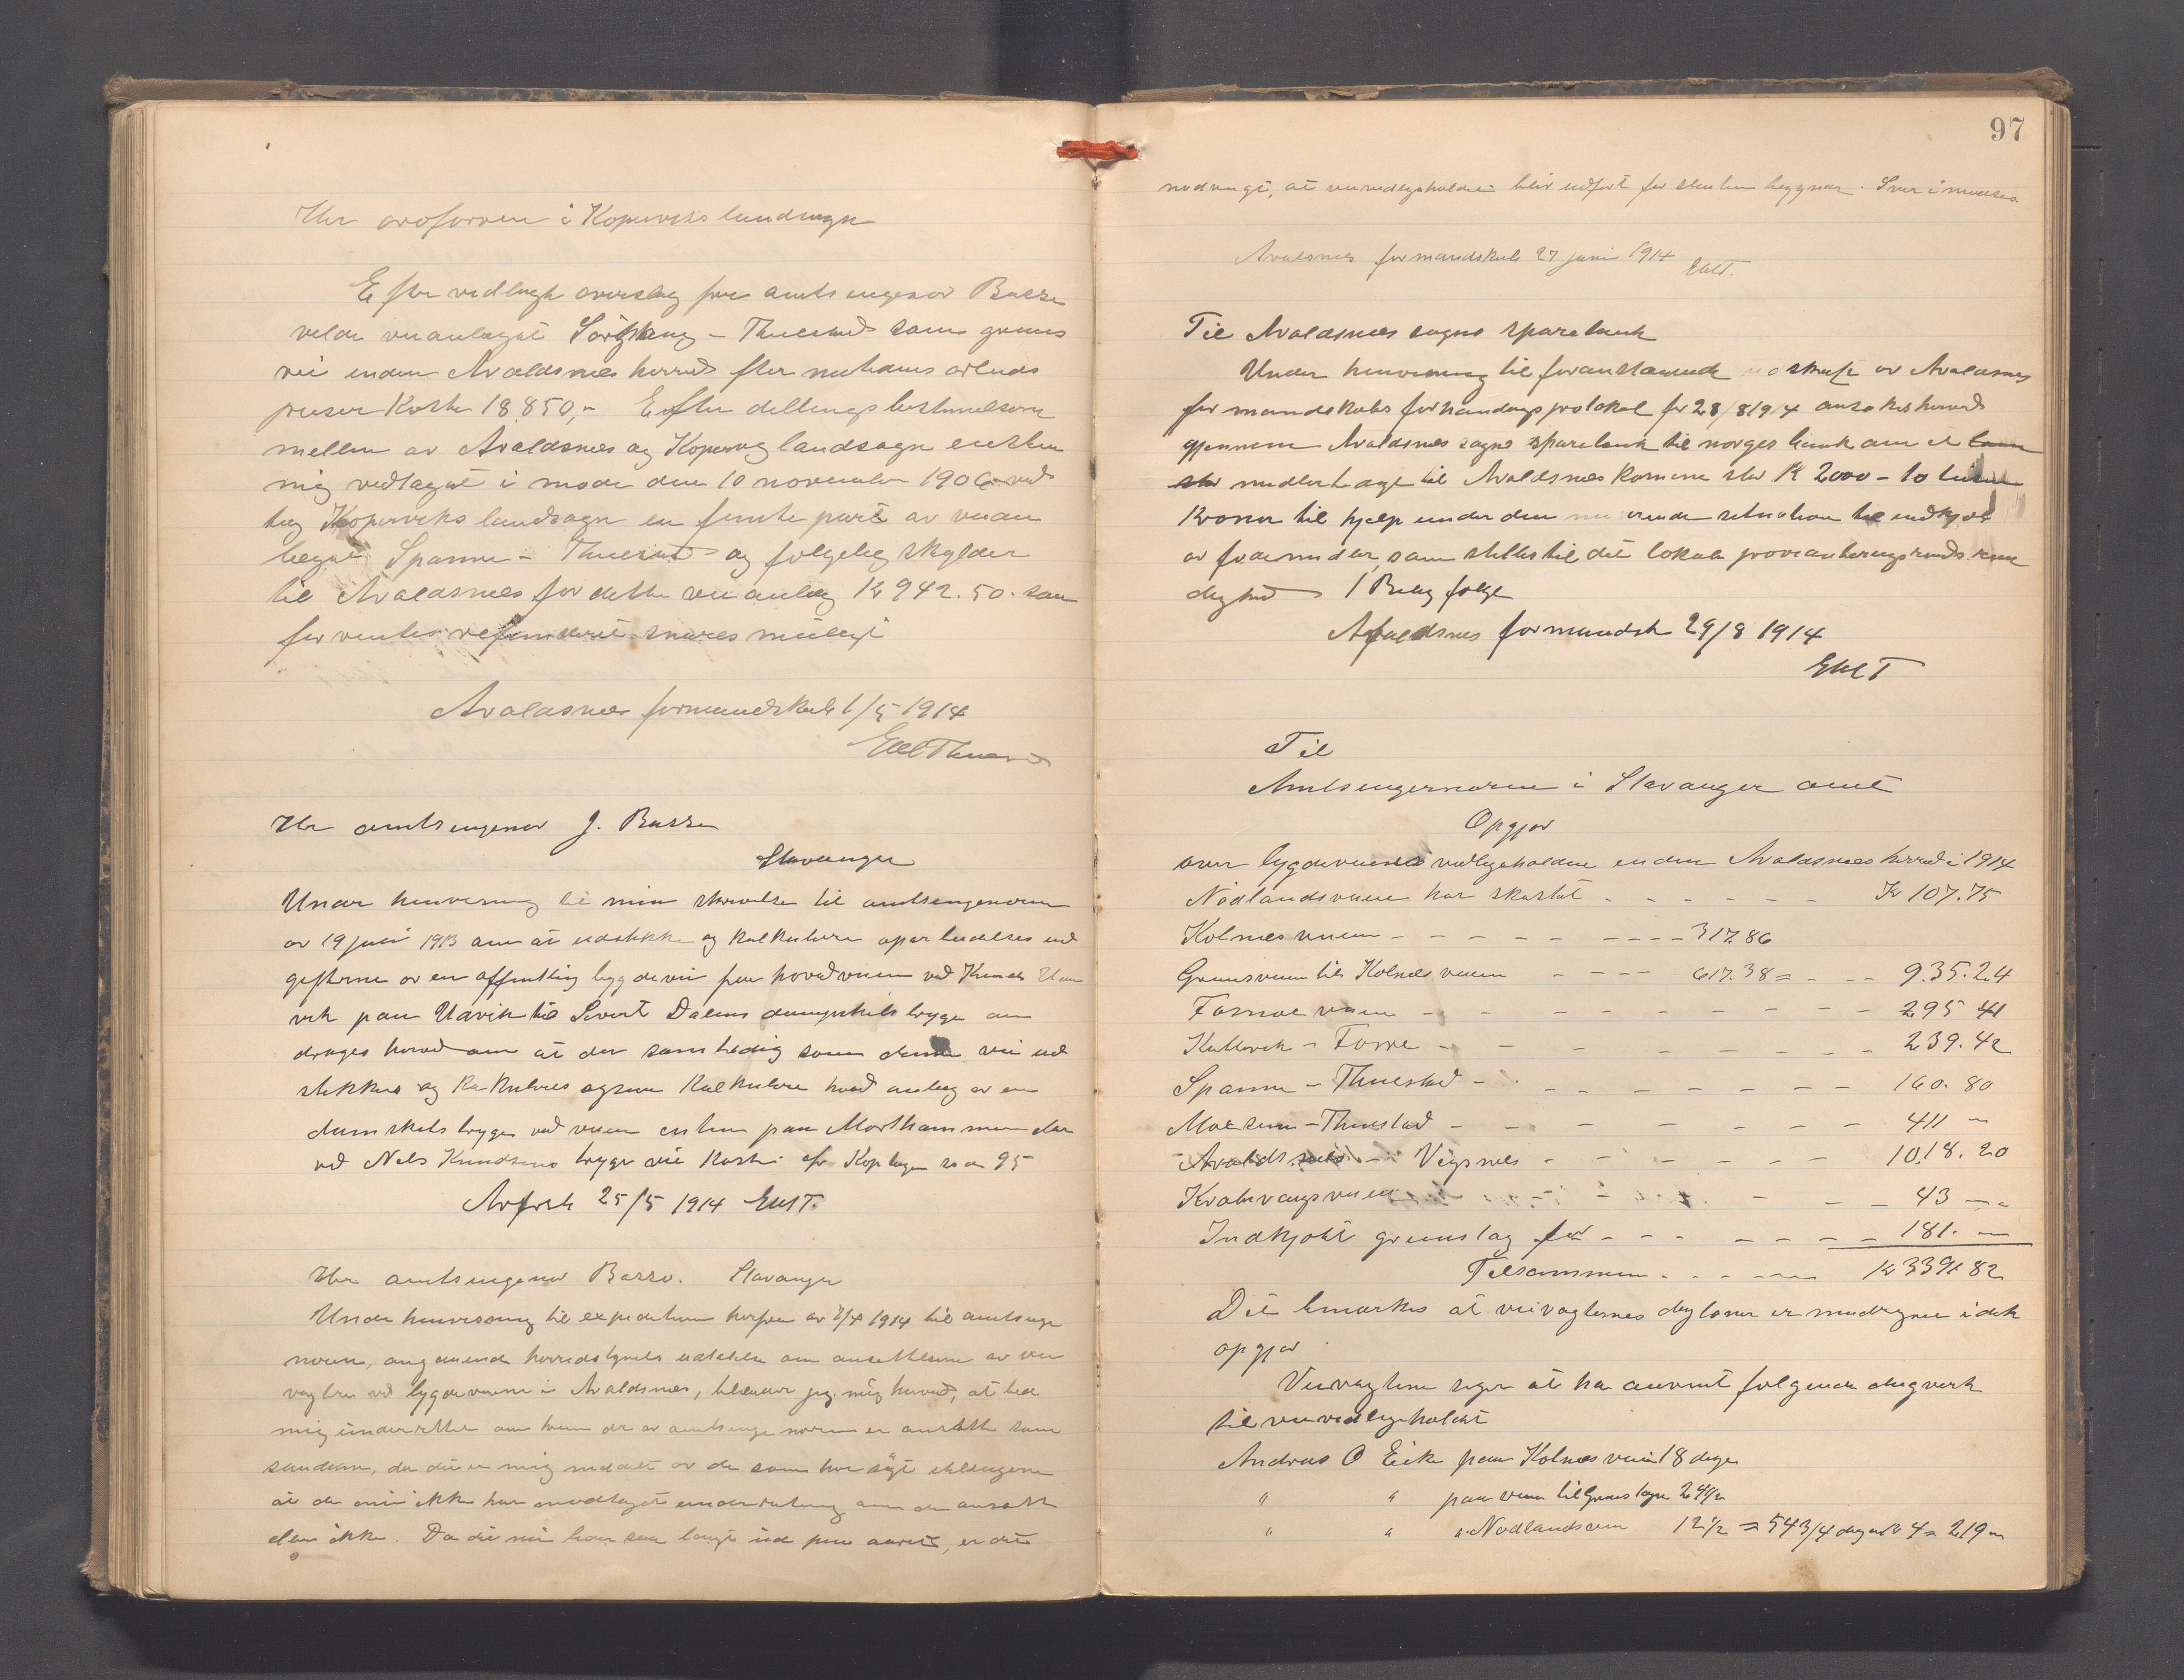 Hr ordføreren i Kopervik landsogn
Efter vedlagte overslag fra amtsingeniør Basse
vilde veianlægget Sørhaug - Thuestad som grus
vei inden Avaldsnes herred efter nutidens arbeids
priser koste 18850,- Efter delings bestemmelserne
mellem av Avaldsnes og Kopervig landsogn
mig vedtaget i møde den 10 november 1906 ved
tog Koperviks landsogn en femte part av veian
lægget Spanne - Thuestad og følgelig skylder
til Avaldsnes for dette veianlæg Kr 942.50. som
forventes refunderet snarest muligt
Avaldsnes formandskab 1/5 1914
Thuestad
Hr amtsingeniør J. Basse
Stavanger
Under henvisning til min skrivelse til amtsingeniøren
av 19 juni 1913 om at udstikke og kalkulere
gifterne av en offentlig bygdevei fra hovedveien ved
vik paa Udvik til Sivert Dalens dampskibsbrygge an
drages herved om at der samtidig som denne vei ud
stikkes og kalkuleres ogsaa kalkulere hvad anlæg av en
dampskibs brygge ved veien enten paa Morthammeren eller
ved Nels Knudsens brygge vil koste
25/5 1914
Hr amtsingeniør Basse. Stavanger
Under henvisning til expedition herfra av 7/4 1914 til amtsinge
niøren, angaaende herredstyrets udtalelse om ansættelsen av vei
vogtere ved bygdeveiene i Avaldsnes, tillader jeg mig herved, at bede
mig underrettet om hvem der av amtsingeniøren er ansatte som
saadan, da det er mig meddelt av de som har søgt stillingerne
at de enu ikke har modtaget underretning om de er ansatt
eller ikke. Da det nu er saa langt ud paa aaret, er det
97
nødvendigt, at veivedligeholdet blir udført før slaatten begynder. Svar imødeses
Avaldsnes formandskab 27 juni 1914
Til Avaldsnes sogns sparebank
Under henvisning til foranstaaende utskrift av Avaldsnes
formandskabs forhandlingsprotokol for 28/8 1914 ansøkes herved
gjennem Avaldsnes sogns sparebank til Norges bank om et laan
stor midlertidige til Avaldsnes komune stor Kr 2000 - to tusen
Kroner til hjælp under den nuværende situation til indkjøb
av fødemidler, som stilles til det lokale provianteringsraads raa
dighed 1 Bilag følger
Avaldsnes formandsk 29/8 1914
Til
Amtsingeniøren i Stavanger amt
Opgjør
over bygdeveienes vedligeholdelse inden Avaldsnes herred i 1914
Nodlandsveien har kostet - - - - - - Kr 107.75
Kolnesveien - - - - - - - - - 317.86
Grensveien til Kolnesveien - - - - 617.38 = - - - 935.24
Fosnoe veien - - - - - - - - - - 295 41
Kallevik - Førre - - - - - - - - 239.42
Spanne - Thuestad - - - - - - - - 160. 80
Moksheim - Thuestad - - - - - - - - 411 -
Avaldsnes - Vigsnes - - - - - - - 1018. 20
Kvalavaagsveien - - - - - - - 43 -
Indkjøbt gruustag for - - - - - - - - 181. -
Tilsammen - - - - - Kr 3391 82
Det bemærkes at veivogternes dagløner er medregnet i dette
opgjør
Veivogterne siger at ha anvendt følgende dagverk
til veivedligeholdet
Andreas O Eike paa Kolnesveien 18 dage
" " paa veien til Grenstagn 24 1/4
" " " Nodlandsveien 12 1/2 = 54 3/4 dag a Kr 4 = 219 -